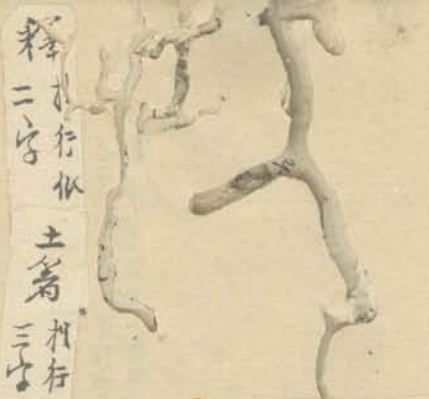 釋
提行低
二字
土著
提行
三字